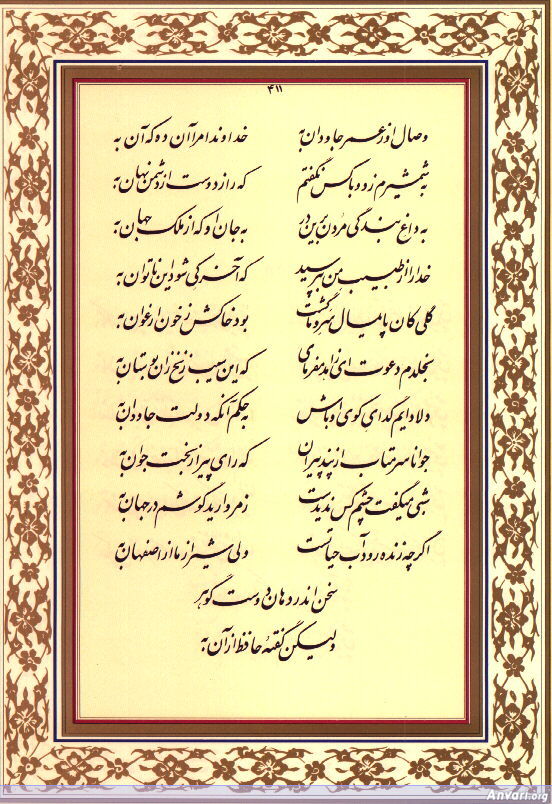 ۴۱۱
وصال او ز عمر جاودان به خداوندا مرا آن ده که آن به
به شمشیرم زد و با کس نگفتم که راز دوست از دشمن نهان به
به داغ بندگی مردن برین در به جان او که از ملک جهان به
خدا را از طبیب من بپرسید که آخر کی شود این ناتوان به
گلی کان پایمال سرو ما گشت بود خاکش ز خون ارغوان به
بخلدم دعوت ای زاهد مفرمای که این سیب زنخ زان بوستان به
دلا دایم گدای کوی او باش به حکم آنکه دولت جاودان به
جوانا سر متاب از پند پیران که رای پیر از بخت جوان به
شبی میگفت چشم کس ندیدست ز مروارید گوشم در جهان به
اگرچه زنده رود آب حیاتست ولی شیراز ما از اصفهان به
سخن اندر دهان دوست گوهر
ولیکن گفته حافظ از آن به
Anvari.org